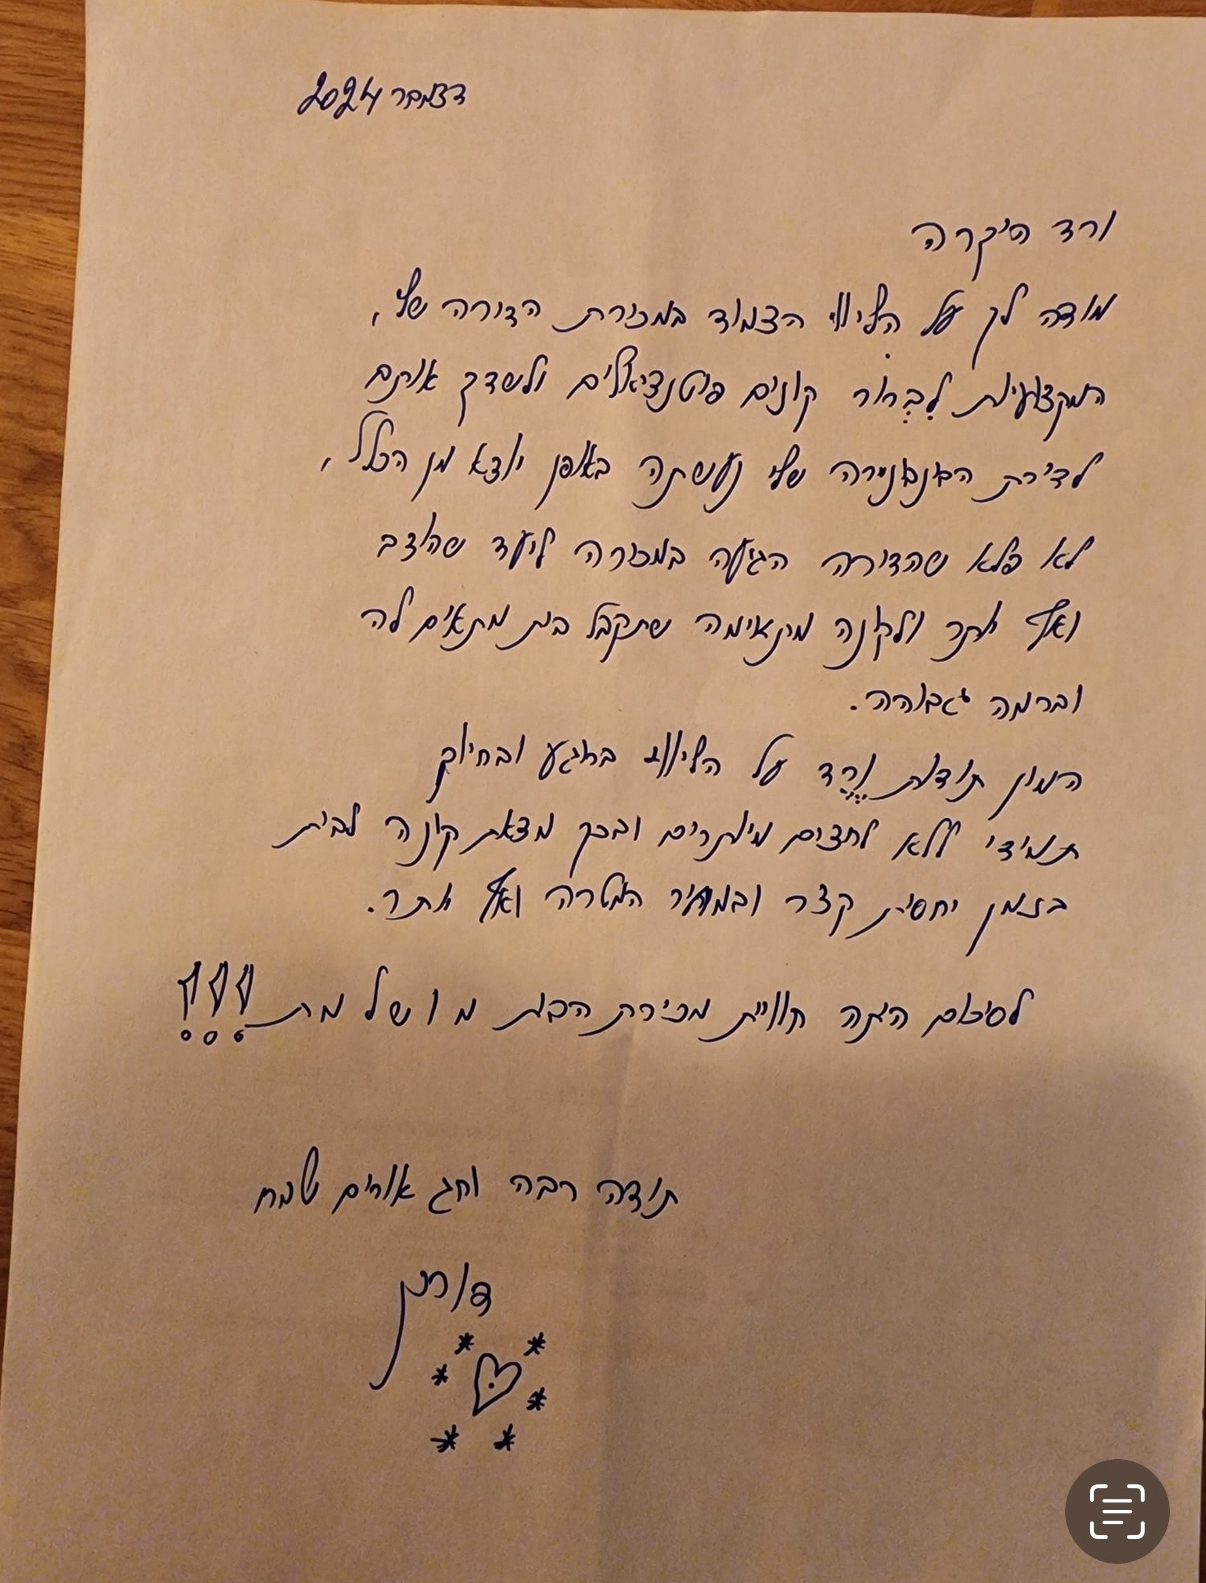 דצמבר 2024
ורד היקרה
מודה לך על הליווי הצמוד במכירת הדירה שלי,
המקצועיות לִבְרוֹר קונים פוטנציאלים ולשדך אותם
לדירת שלי נעשתה באופן יוצא מן הכלל,
לא פלא שהדירה הגיעה במכירה ליעד שהוצב
ואף יותר ולקונה מתאימה שתקבל בית מתאים לה
וברמה גבוהה.
המון תודות וֶרֶד על הליווי ברוגע ובחיוך
תמידי ללא לחצים מיותרים ובכך מצאת קונה לבית
בזמן יחסית קצר ובמחיר המטרה ואף יותר.
לסיכום היתה חוויית מכירת הבית מ ו ש ל מ ת !!!
תודה רבה וחג אורים שמח
דורית